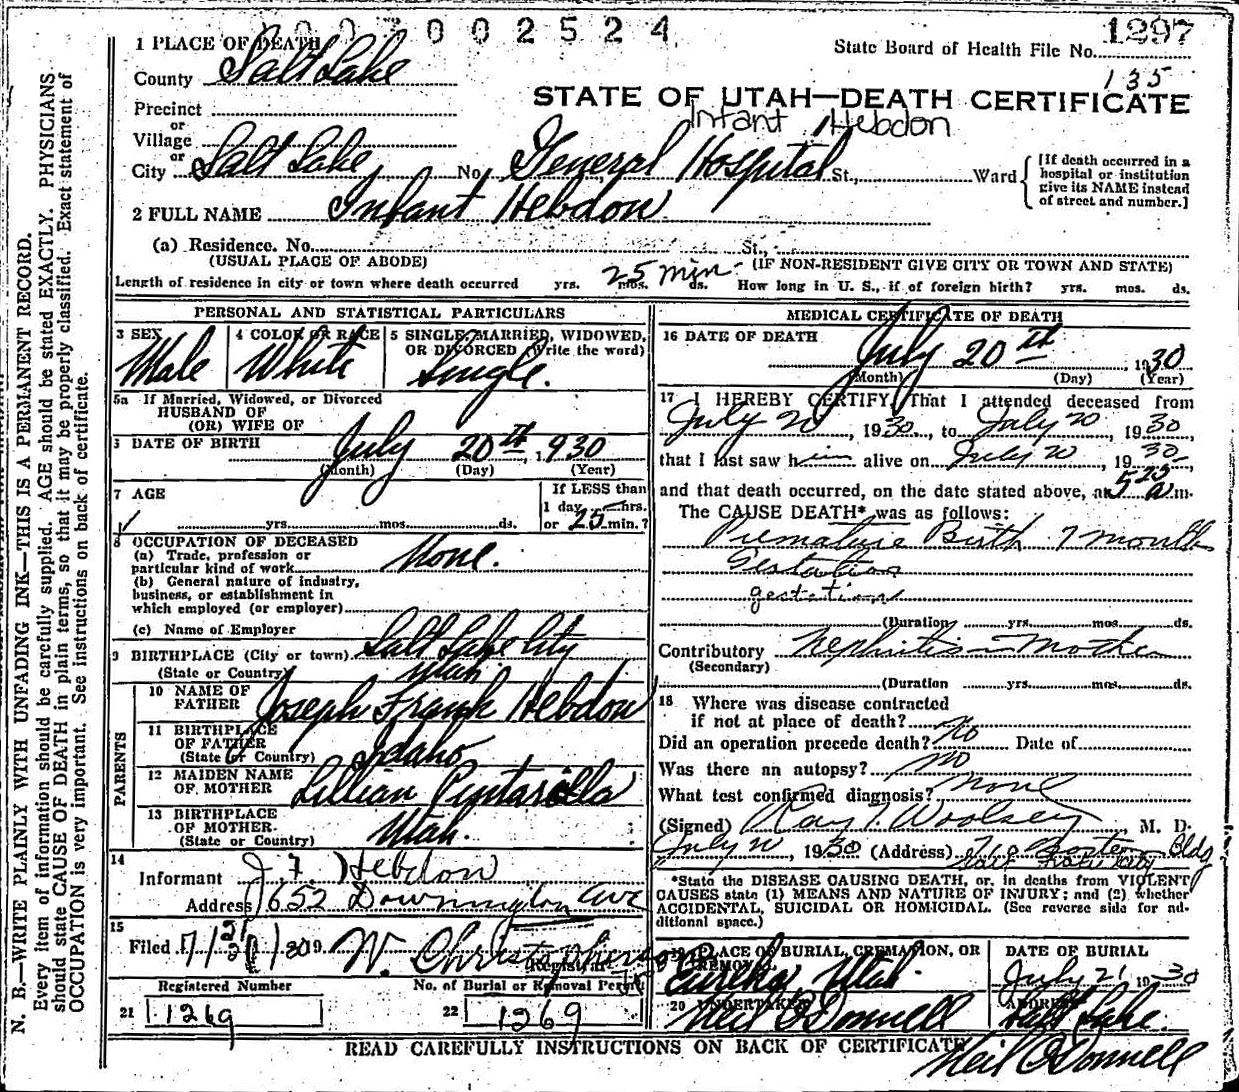 007002524
1297
State Board of Health File No.
135
1 PLACE OF DEATH
County Salt Lake
STATE OF UTAH—DEATH CERTIFICATE
Infant Hebdon
Precinct
or
Village
or
City Salt Lake No. General Hospital St., Ward
[If death occurred in a hospital or institution give its NAME instead of street and number.]
2 FULL NAME Infant Hebdon
(a) Residence. No. St.,
(USUAL PLACE OF ABODE) (IF NON-RESIDENT GIVE CITY OR TOWN AND STATE)
25 min.
Length of residence in city or town where death occurred yrs. mos. ds. How long in U. S., if of foreign birth? yrs. mos. ds.
PERSONAL AND STATISTICAL PARTICULARS
3 SEX 4 COLOR OR RACE 5 SINGLE, MARRIED, WIDOWED, OR DIVORCED (Write the word)
Male White Single.
5a If Married, Widowed, or Divorced
HUSBAND OF
(OR) WIFE OF
6 DATE OF BIRTH July 20th, 1930
(Month) (Day) (Year)
7 AGE If LESS than
1 day hrs.
yrs. mos. ds. or 25 min.?
8 OCCUPATION OF DECEASED
(a) Trade, profession or
particular kind of work None.
(b) General nature of industry,
business, or establishment in
which employed (or employer)
(c) Name of Employer
9 BIRTHPLACE (City or town) Salt Lake City
(State or Country) Utah
PARENTS
10 NAME OF FATHER Joseph Frank Hebdon
11 BIRTHPLACE OF FATHER
(State or Country) Idaho
12 MAIDEN NAME OF MOTHER Lillian
13 BIRTHPLACE OF MOTHER
(State or Country) Utah.
14
Informant J F Hebdon
Address 1652 Downington Ave
15
Filed 7/21/30 19 W. Christopherson
Registrar
Registered Number No. of Burial or Removal Permit
21 1269 22 1269
MEDICAL CERTIFICATE OF DEATH
16 DATE OF DEATH July 20th, 1930
(Month) (Day) (Year)
17 I HEREBY CERTIFY, That I attended deceased from
July 20, 1930, to July 20, 1930,
that I last saw him alive on July 20, 1930,
and that death occurred, on the date stated above, at 5 25 a.m.
The CAUSE DEATH* was as follows:
Premature Birth 7 months
Gestation
gestation
(Duration yrs. mos. ds.
Contributory Nephritis - Mother
(Secondary)
(Duration yrs. mos. ds.
18 Where was disease contracted
if not at place of death?
Did an operation precede death? No Date of
Was there an autopsy? No
What test confirmed diagnosis? None
(Signed) Ray T. Woolsey M. D.
July 20, 1930 (Address) Bldg
Salt Lake City
*State the DISEASE CAUSING DEATH, or, in deaths from VIOLENT
CAUSES state (1) MEANS AND NATURE OF INJURY; and (2) whether
ACCIDENTAL, SUICIDAL OR HOMICIDAL. (See reverse side for additional space.)
19 PLACE OF BURIAL, CREMATION, OR REMOVAL DATE OF BURIAL
Eureka Utah. July 21 1930
20 UNDERTAKER ADDRESS
Neil O'Donnell Salt Lake.
READ CAREFULLY INSTRUCTIONS ON BACK OF CERTIFICATE
Neil O'Donnell
N. B.—WRITE PLAINLY WITH UNFADING INK—THIS IS A PERMANENT RECORD.
Every item of information should be carefully supplied. AGE should be stated EXACTLY. PHYSICIANS
should state CAUSE OF DEATH in plain terms, so that it may be properly classified. Exact statement of
OCCUPATION is very important. See instructions on back of certificate.